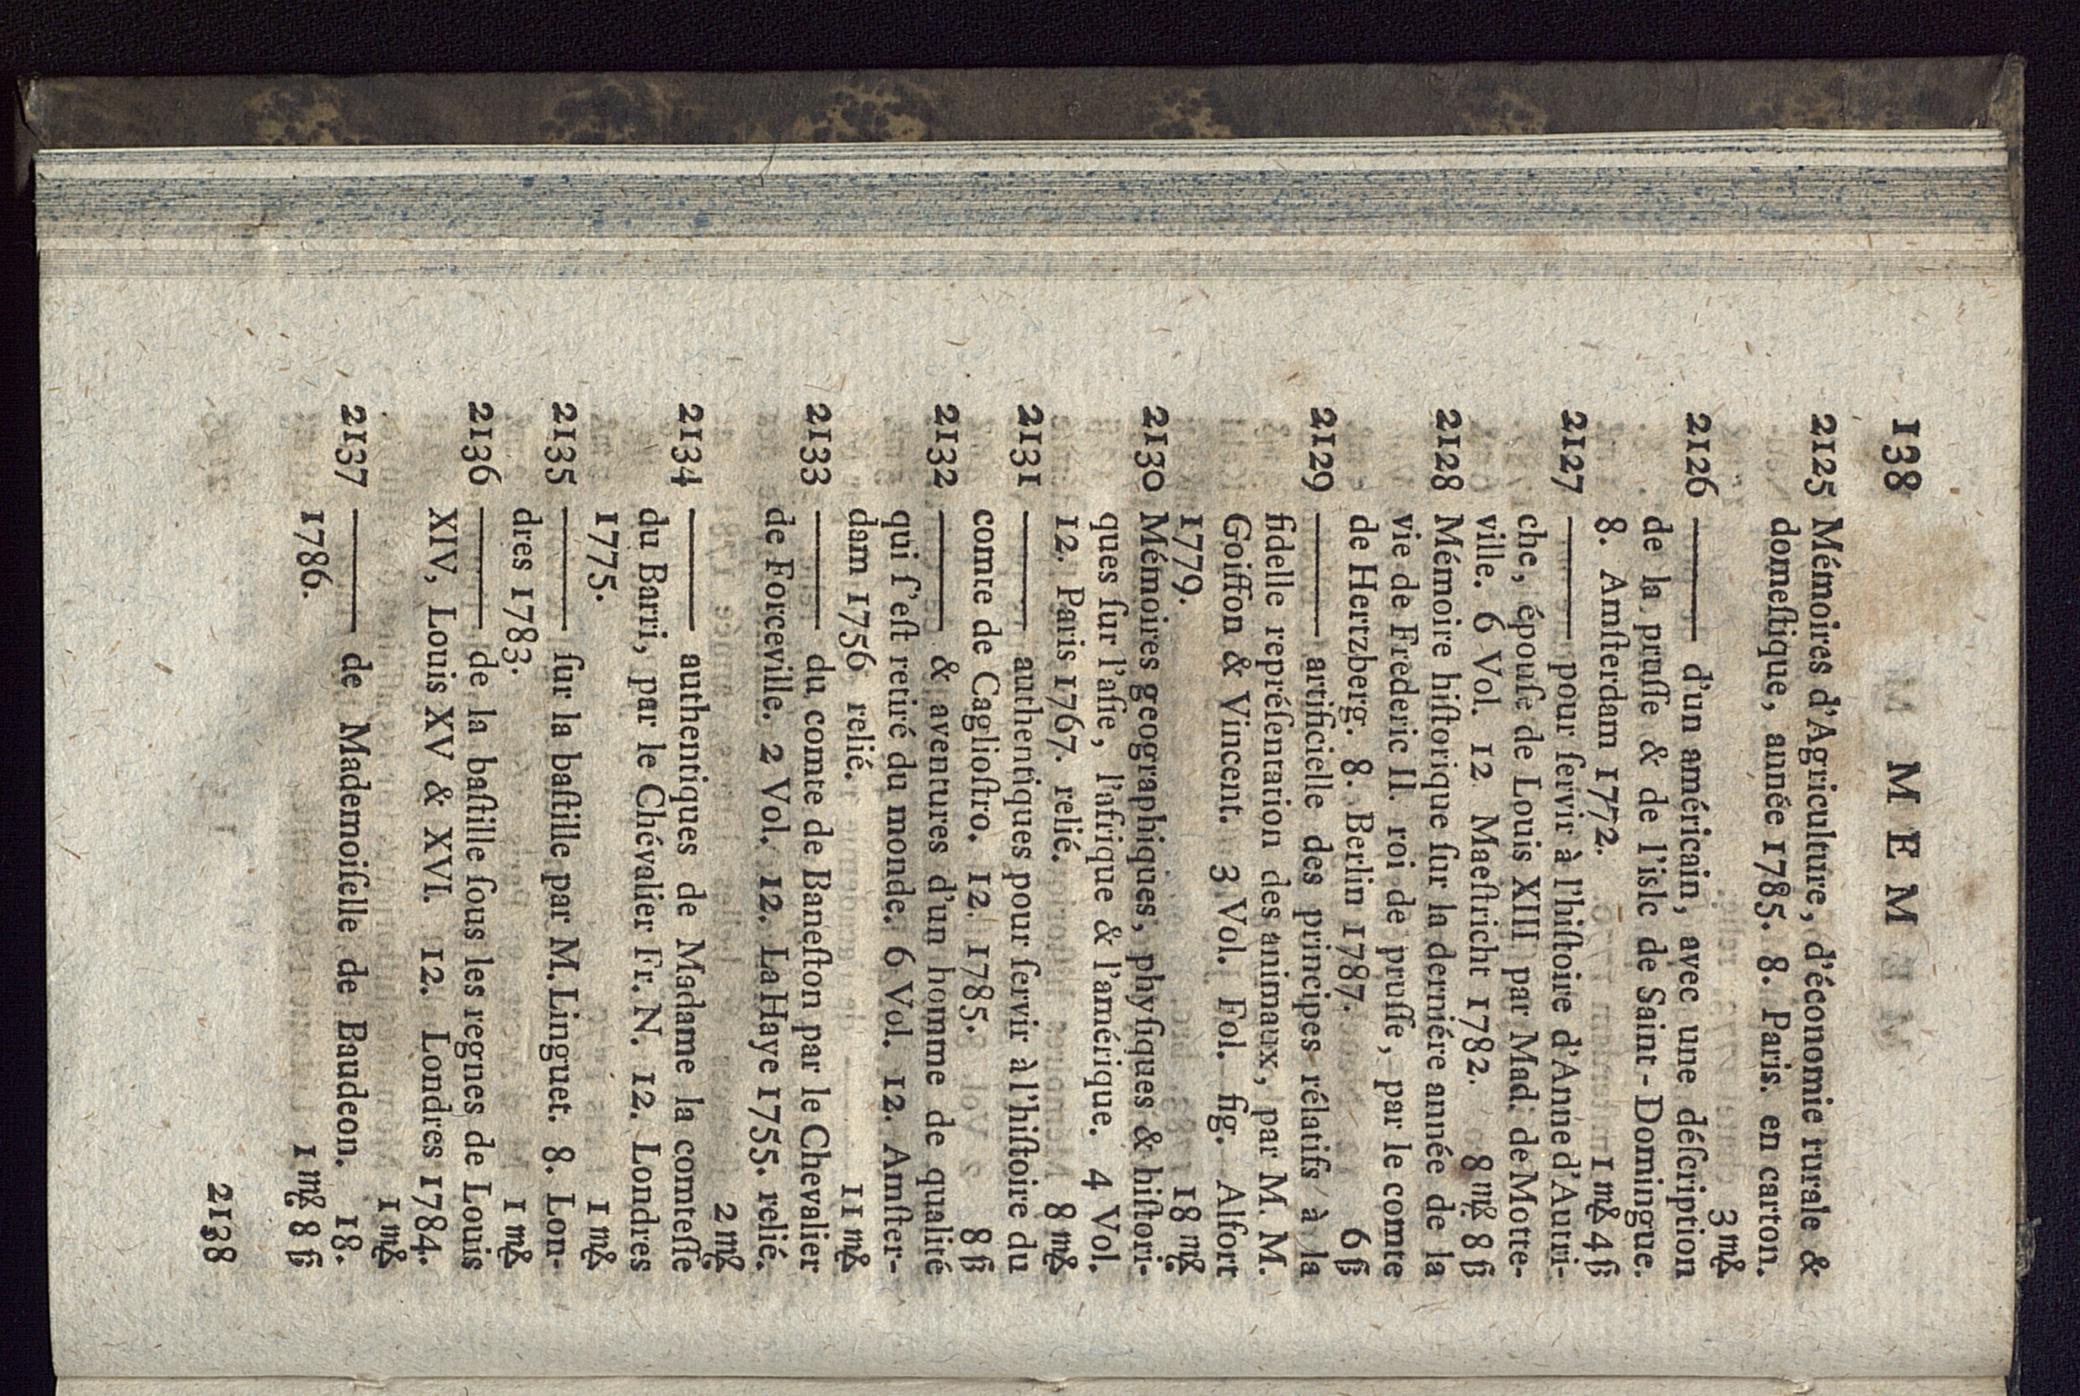 138 MEM
2125 Mémoires d'Agriculture, d'économie rurale &
domeſtique, année 1785. 8. Paris. en carton.
3 m&
2126 ——— d'un américain, avec une déſcription
de la pruſſe & de l'isle de Saint-Domingue.
8. Amſterdam 1772. 1 m& 4 ß
2127 ——— pour ſervir à l'hiſtoire d'Anne d'Autri-
che, épouſe de Louis XIII par Mad. de Motte-
ville. 6 Vol. 12 Maeſtricht 1782. 8 m& 8 ß
2128 Mémoire hiſtorique ſur la derniére année de la
vie de Frederic II. roi de pruſſe, par le comte
de Hertzberg. 8. Berlin 1787. 6 ß
2129 ——— artificielle des principes rélatifs à la
fidelle repréſentation des animaux, par M. M.
Goiffon & Vincent. 3 Vol. Fol. fig. Alfort
1779. 18 m&
2130 Mémoires geographiques, phyſiques & hiſtori-
ques ſur l'aſie, l'afrique & l'amérique. 4 Vol.
12. Paris 1767. relié. 8 m&
2131 ——— authentiques pour ſervir à l'hiſtoire du
comte de Caglioſtro. 12. 1785. 8 ß
2132 ——— & aventures d'un homme de qualité
qui ſ'eſt retiré du monde. 6 Vol. 12. Amſter-
dam 1756 relié. 11 m&
2133 ——— du comte de Baneſton par le Chevalier
de Forceville. 2 Vol. 12. La Haye 1755. relié.
2 m&
2134 ——— authentiques de Madame la comteſſe
du Barri, par le Chévalier Fr. N. 12. Londres
1775. 1 m&
2135 ——— ſur la baſtille par M. Linguet. 8. Lon-
dres 1783. 1 m&
2136 ——— de la baſtille ſous les regnes de Louis
XIV, Louis XV & XVI. 12. Londres 1784.
1 m&
2137 ——— de Mademoiſelle de Baudeon. 18.
1786. 1 m& 8 ß
2138